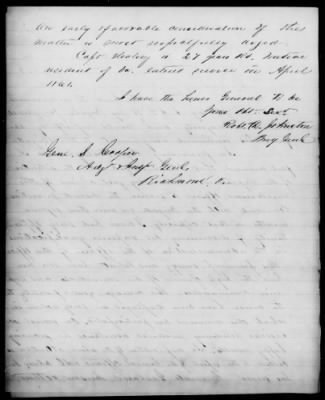 An early favorable consideration of this
matter is most respectfully urged.
Capt is a 27 years old, native
resident of Va. entered service in April
1861.
I have the honor General to be
Your Obt. Servt
Robt Johnston
Brig Genl
Genl S. Cooper
Adjt & Insp Genl
Richmond Va